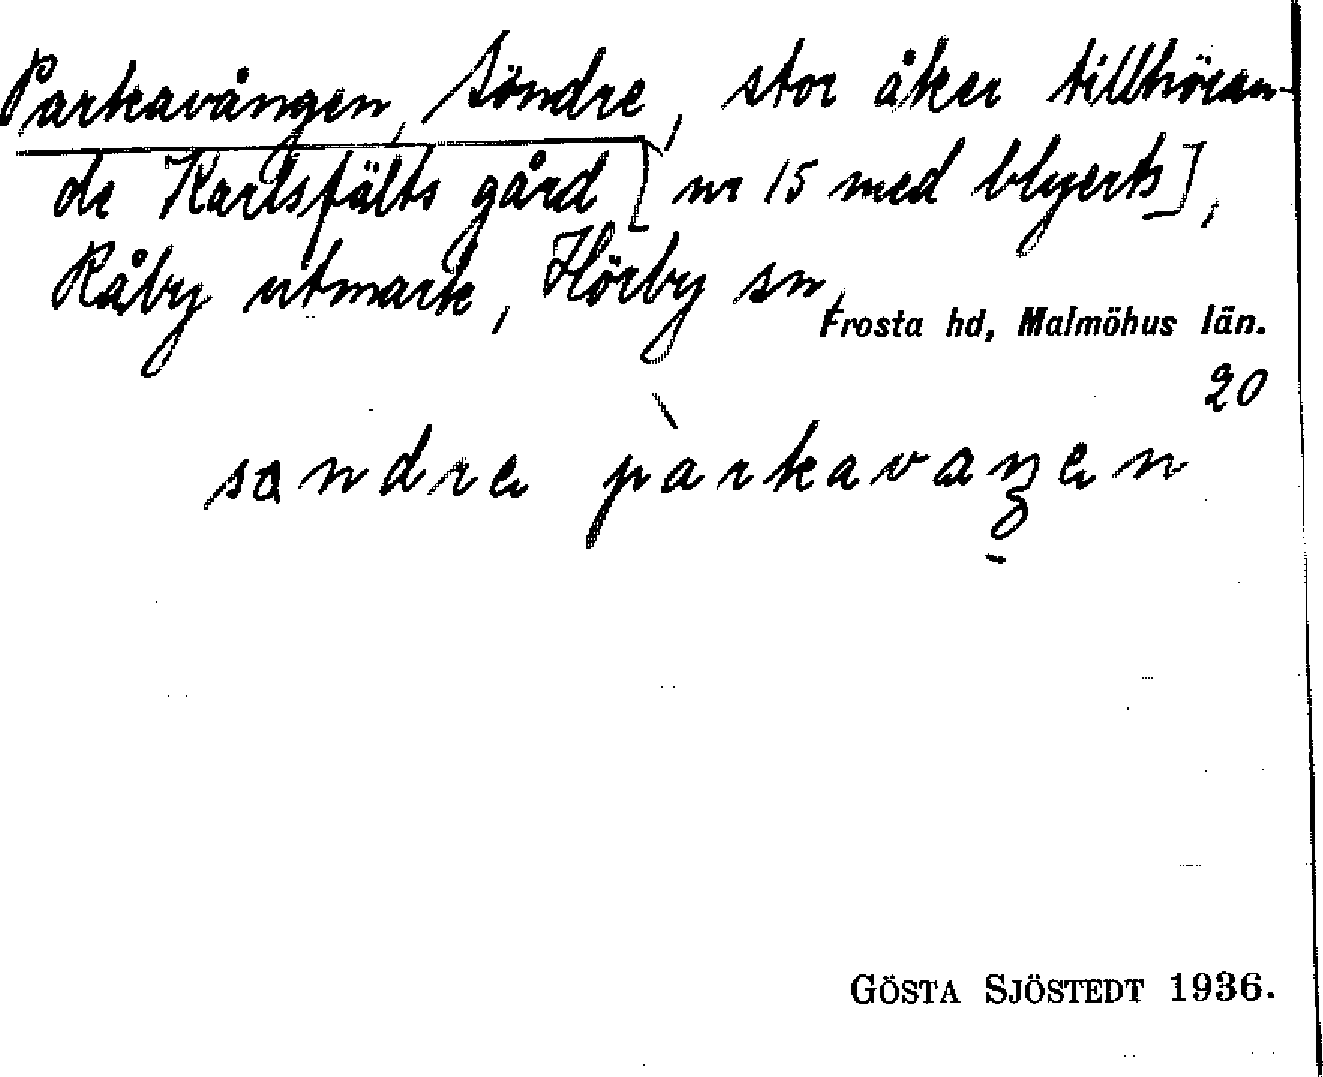 Parkavången, Söndre, stor åker tillhöran-
de Karlsfälts gård [nr 15 med blyerts],
Råby utmark, Hörby sn,
Frosta hd, Malmöhus län.
20
sandre pàrkavaŋen
GÖSTA SJÖSTEDT 1936.